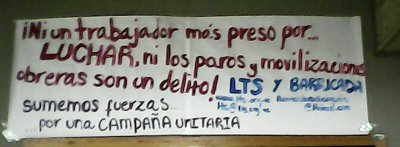 ¡Ni un trabajador más preso por...
LUCHAR, ni los paros y movilizaciones
obreras son un delito! LTS Y BARRICADA
sumemos fuerzas...
...por una CAMPAÑA UNITARIA